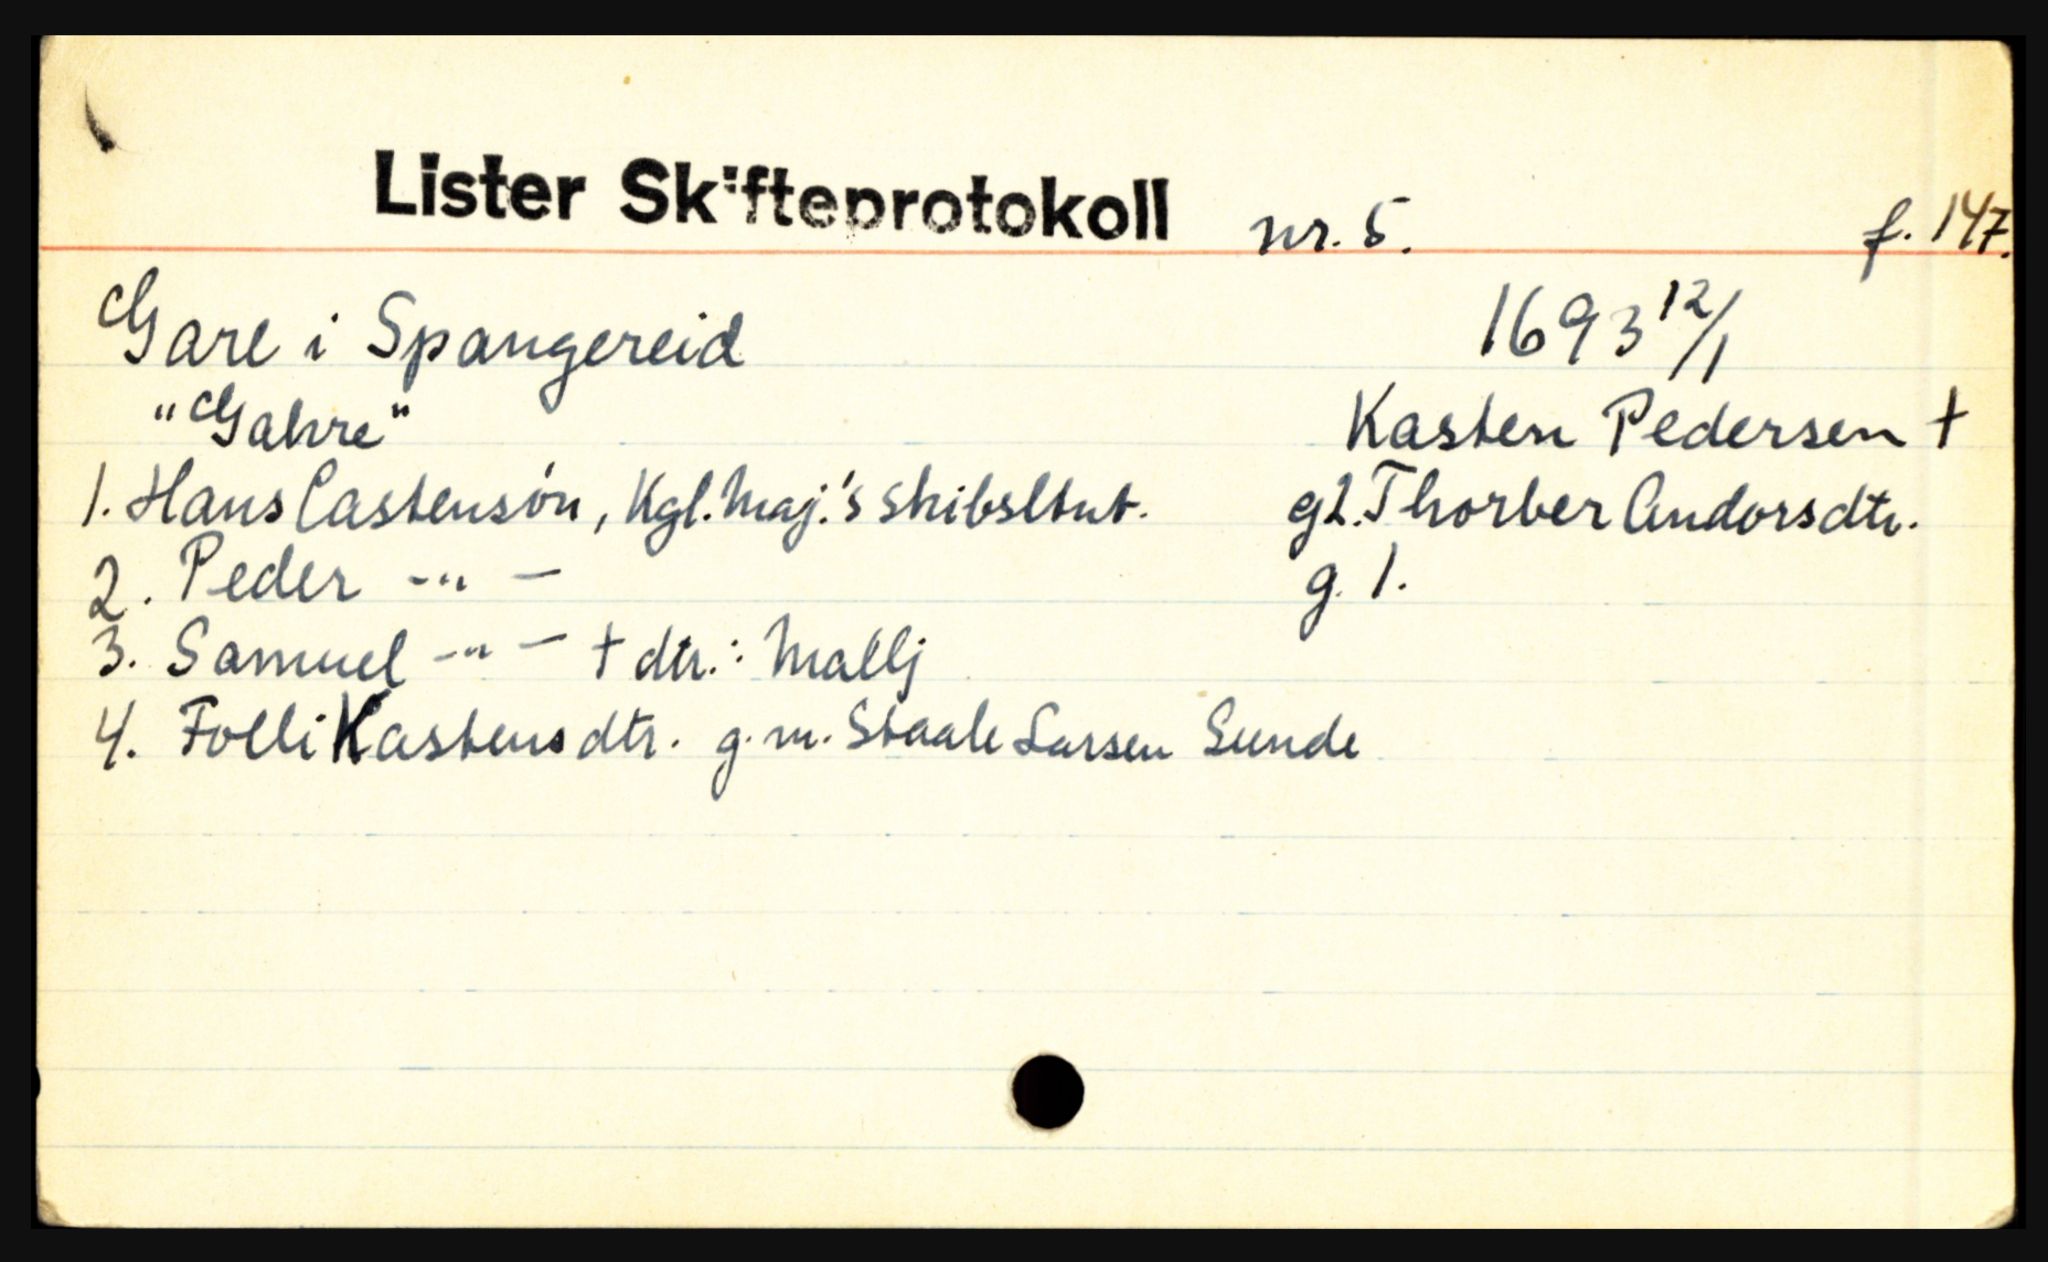 Lister Skifteprotokoll nr. 5. f. 147.
Gare i Spangereid 1693 12/1
"Gahre" Kasten Pedersen †
1. Hans Castensøn, Kgl. Maj.'s skibsltnt. g2. Thorber Andorsdtr.
2. Peder -"- g. 1.
3. Samuel -"- † dtr.: Mallj
4. Folli Kastensdtr. g.m. Staale Larsen Sunde